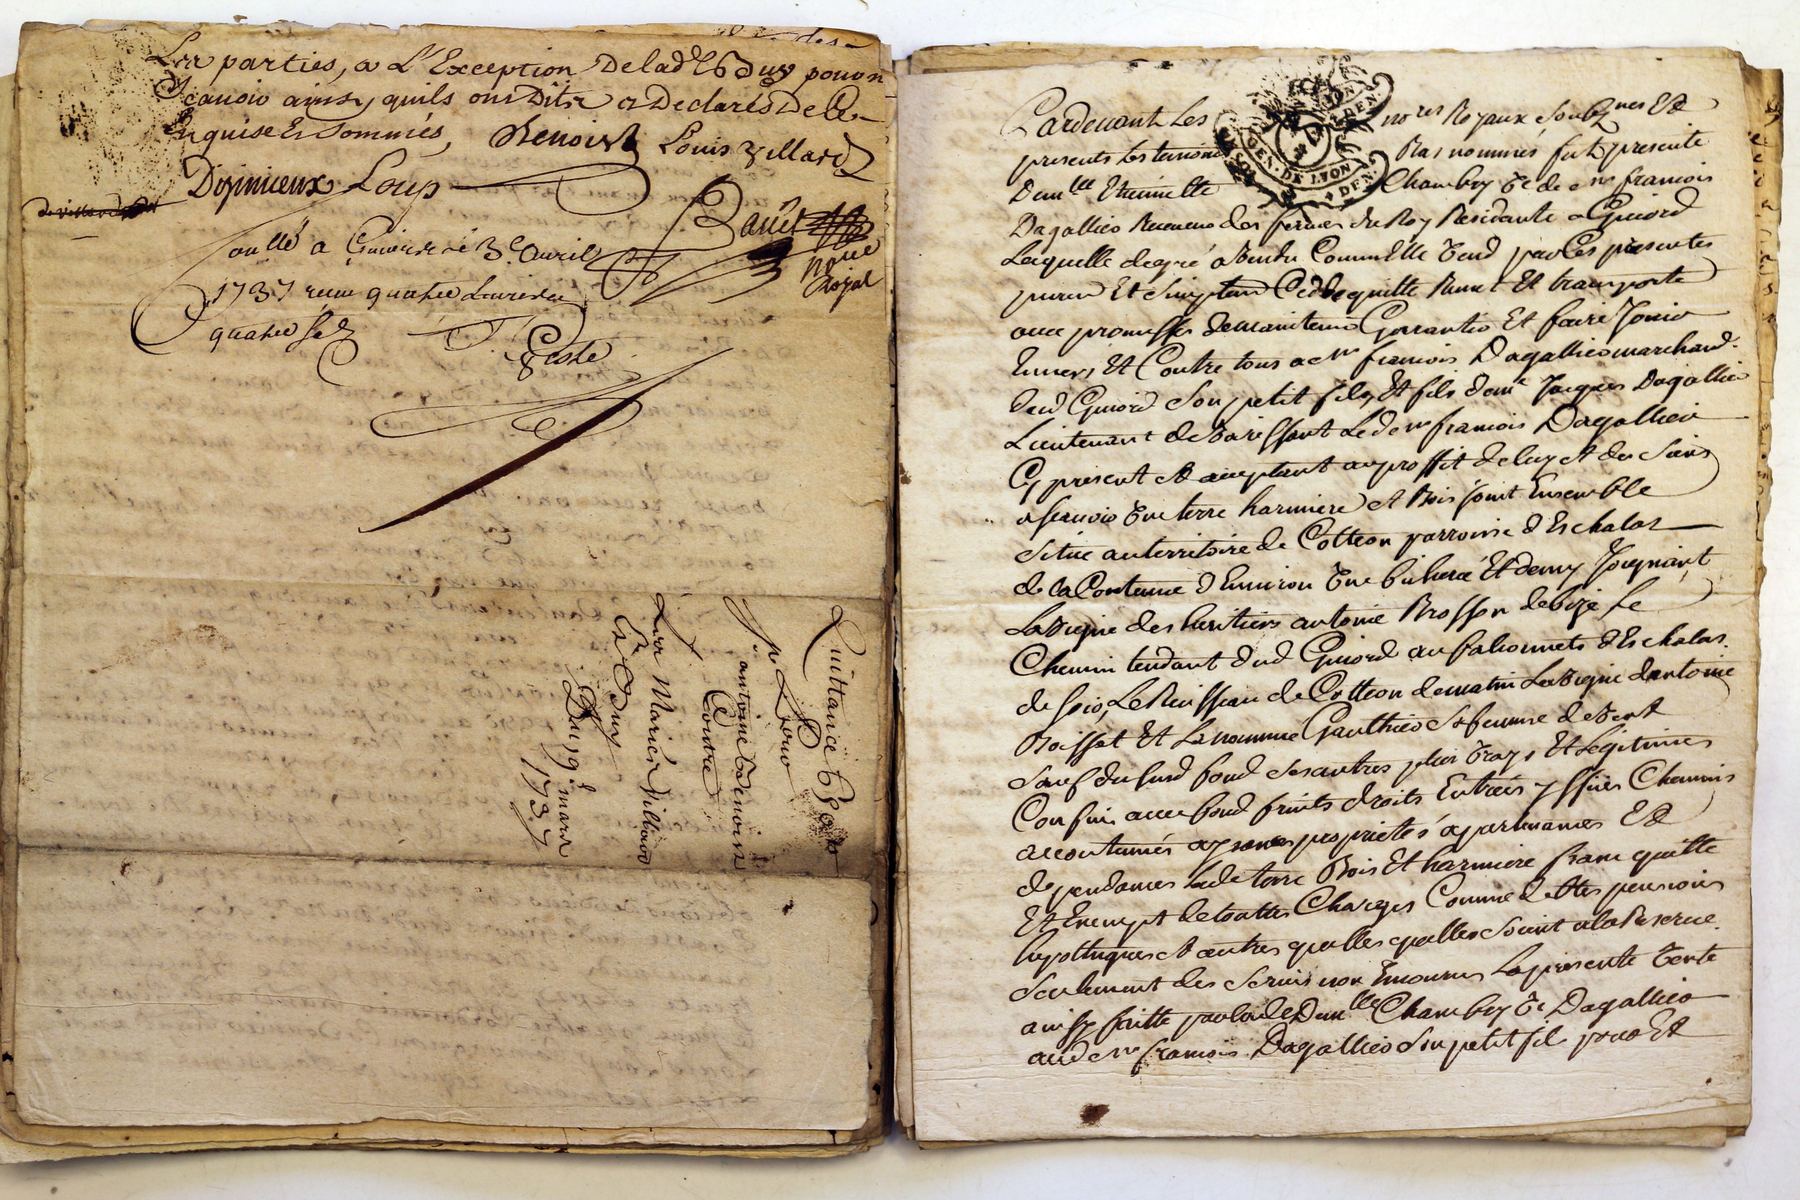 Les parties, a L'Exception De lad. Duy pour n
scavoir ainsy quils ont Dit et Declarés De ce
Enquise Et sommés, Benoist Louis Villard
Dizimieux Loup
Bavet
nore
Royal
oullé a Givors le 3e Avril
1737 receu quatre Livres
quatre
Quittance
pr
antoine Benoist
Contre
Les Mariés Villard
Et Duy
Du 19e mars
1737
Pardevant Les no.res Royaux Soubz.nes Et
presents les temoins Bas nommés fut presente
Dem.lle Etiennette Chambry Ve de Sr francois
Dagallier Receveur des fermes du Roy Residante a Givord
Laquelle degré a Vendu Comme Elle Vend par Ces presentes
purem Et Simplem Cedde quitte Remet Et transporte
avec promesse de maintenir Garrantir Et faire Jouir
Envers Et Contre tous a Sr francois Dagallier marchand
dud Givord Son petit fils Et fils de Me Jacques Dagallier
Lieutenant de Led Sr francois Dagallier
Cy present et acceptant au proffit de luy et des Siens
a scavoir Une terre harmiere et Bois joint Ensemble
Situé au territoire de Cotteon parroisse d'Eschalas
de la Contenue d'Environ Une bicherée Et demy Joignant
La Vigne des heritiers antoine Brossson de bize Le
Chemin tendant dud Givord au d'Eschalas
de soir, Le Ruisseau de Cotteon de matin La Vigne dantoine
Boissat Et La nommé Gauthier Sa femme de Vent
Sauf du Surd fond Ses autres plus Vrays Et Legitimes
Confins avec fond fruits droits Entrées yssües Chemins
accoutumés aysances proprietés appartenances Et
dependances lade terre Bois Et harmiere franc quitte
Et Exempt de touttes Charges Comme debtes pensions
hypotheques et autres quelles quelles Soient a la Reserve
Seulement des Servis non Encourus La presente Vente
ainsy faitte par lade Dem.lle Chambry Ve Dagallier
aud Sr francois Dagallier Son petit fils pour Et